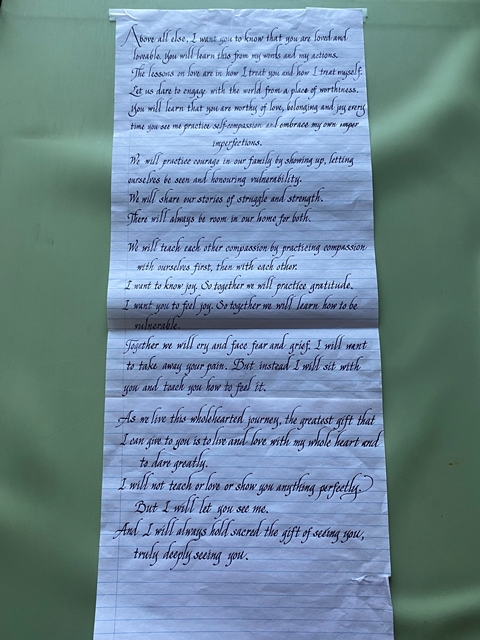 Above all else, I want you to know that you are loved and
loveable. You will learn this from my words and my actions.
The lessons on love are in how I treat you and how I treat myself.
Let us dare to engage with the world from a place of worthiness.
You will learn that you are worthy of love, belonging and joy every
time you see me practice self-compassion and embrace my own imper
imperfections.
We will practice courage in our family by showing up, letting
ourselves be seen and honouring vulnerability.
We will share our stories of struggle and strength.
There will always be room in our home for both.
We will teach each other compassion by practicing compassion
with ourselves first, then with each other.
I want to know joy. So together we will practice gratitude.
I want you to feel joy. So together we will learn how to be
vulnerable.
Together we will cry and face fear and grief. I will want
to take away your pain. But instead I will sit with
you and teach you how to feel it.
As we live this wholehearted journey, the greatest gift that
I can give to you is to live and love with my whole heart and
to dare greatly.
I will not teach or love or show you anything perfectly.
But I will let you see me.
And I will always hold sacred the gift of seeing you,
truly deeply seeing you.